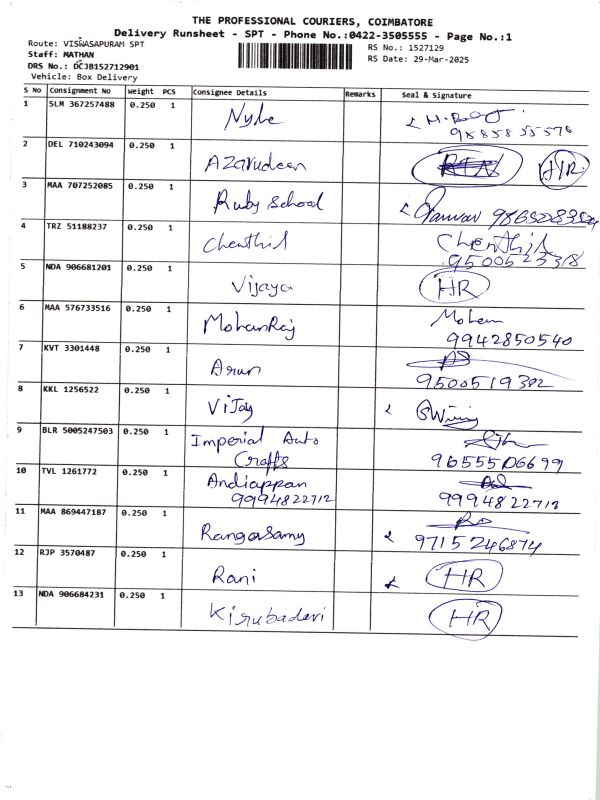 THE PROFESSIONAL COURIERS, COIMBATORE
Delivery Runsheet - SPT - Phone No.:0422-3505555 - Page No.:1
Route: VISWASAPURAM SPT
RS No.: 1527129
Staff: MATHAN
RS Date: 29-Mar-2025
DRS No.: DCJB152712901
Vehicle: Box Delivery
S No Consignment No Weight PCS Consignee Details Remarks Seal & Signature
1 SLM 367257488 0.250 1
2 DEL 710243094 0.250 1 Azarudeen HR
3 MAA 707252085 0.250 1 Ruby School
4 TRZ 51188237 0.250 1 Chenthil Chenthil
9500523318
5 NDA 906681201 0.250 1 Vijaya HR
6 MAA 576733516 0.250 1 MohanRaj Mohan
9942850540
7 KVT 3301448 0.250 1 Arun
9500519382
8 KKL 1256522 0.250 1 Vijay
9 BLR 5005247503 0.250 1 Imperial Auto
Crafts 9655506699
10 TVL 1261772 0.250 1 Andiappan
9994822712 9994822712
11 MAA 869447187 0.250 1 Rangasamy 9715246874
12 RJP 3570487 0.250 1 Rani HR
13 NDA 906684231 0.250 1 Kirubadevi HR